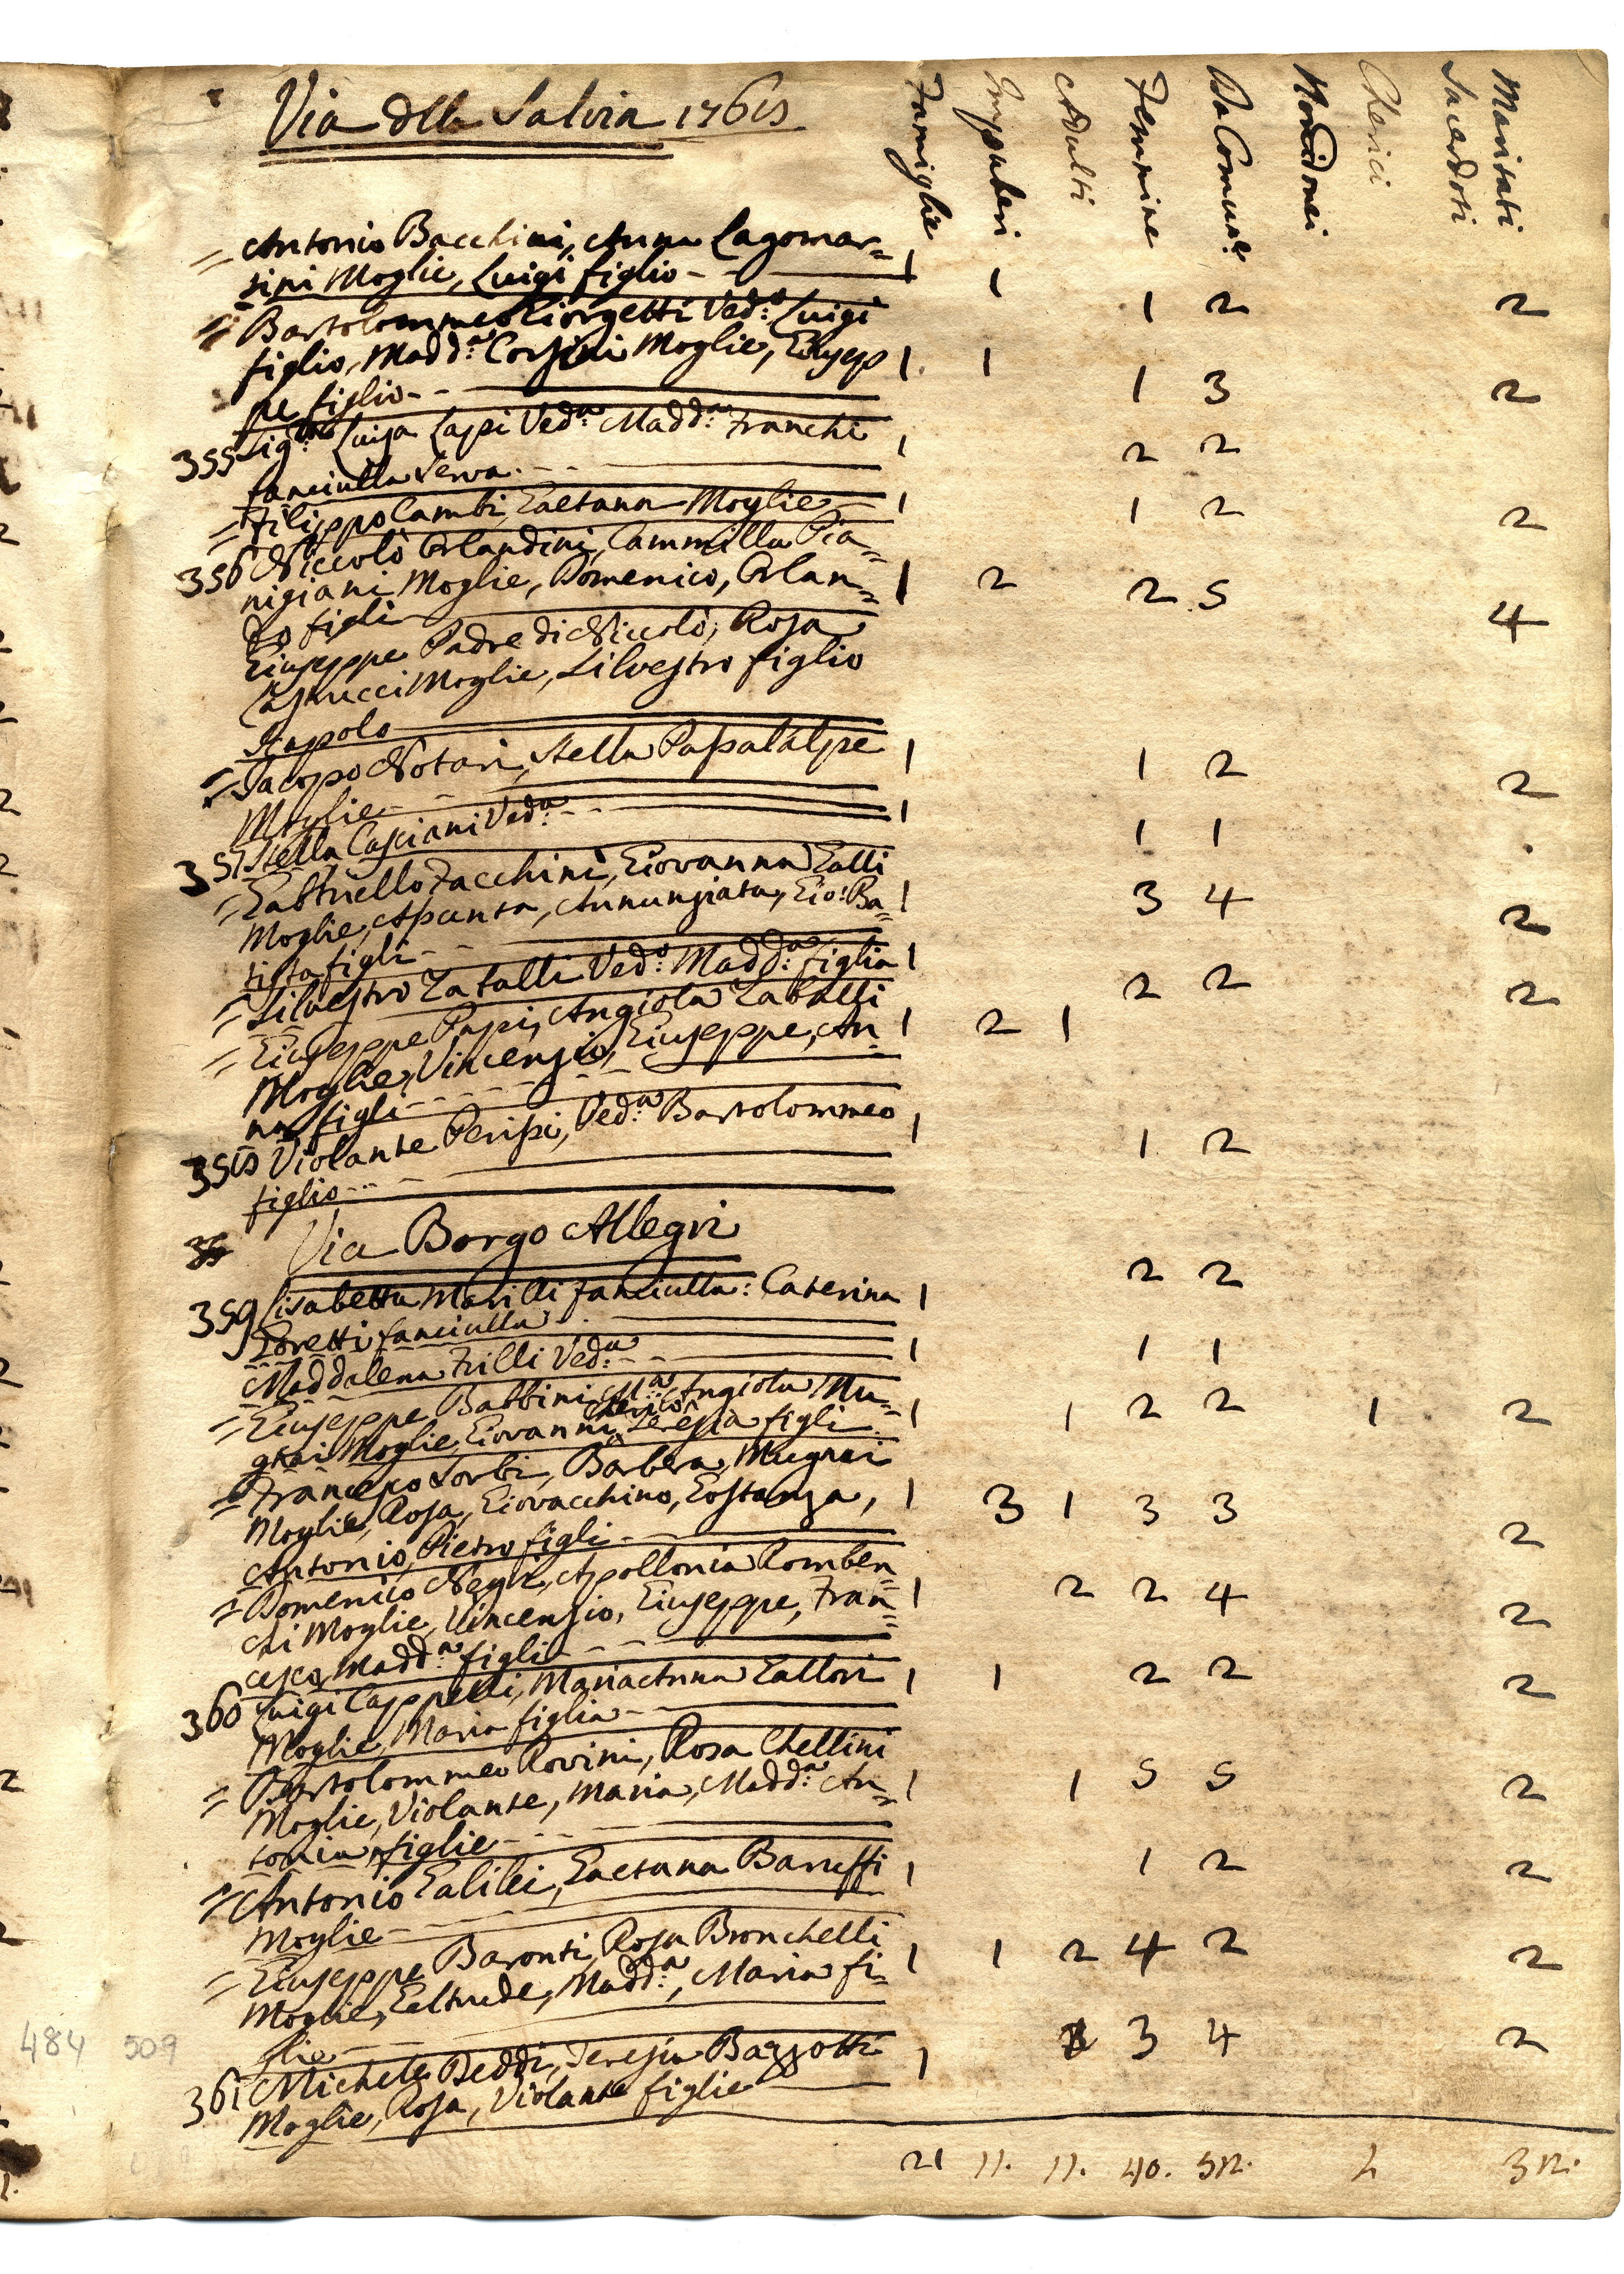 Via della Salvia 1768
Famiglie Impuberi Adulti Femmine Da Comun.e Chierici Sacerdoti Maritati
= Antonio Bacchini, Anna Lagomar= 1 1 1 2 2
sini Moglie, Luigi figlio
= Bartolommeo Giorgetti Ved.o Luigi
figlio, Madd.a Corsini Moglie, Giusep 1 1 1 3 2
pe figlio
355 Sig.ra Luisa Lapi Ved.a Madd.a Franchi 1 2 2
fanciulla Serva
= Filippo Cambi, Gaetana Moglie 1 1 2 2
356 Niccolò Orlandini, Cammilla Pia=
nigiani Moglie, Domenico, Orlan= 1 2 2 5 4
do figli
Giuseppe Padre di Niccolò, Rosa
Moglie, Silvestro figlio
= Jacopo Notari, Stella Passalalpe 1 1 2 2
Moglie
357 Stella Casciani Ved.a 1 1 1
= Gabbriello Facchini, Giovanna Galli
Moglie, Assunta, Annunziata, Gio: Ba= 1 3 4 2
tista figli
= Silvestro Zatalli Ved.o Madd.a figlia 1 2 2 2
= Giuseppe Papi, Angiola Zaballi
Moglie, Vincenzio, Giuseppe, An= 1 2 1
na figli
358 Violante Perissi, Ved.a Bartolommeo 1 1 2
figlio
Via Borgo Allegri
359 Lisabetta Marilli fanciulla: Caterina 1 2 2
Goretti fanciulla
Maddalena Frilli Ved.a 1 1 1
= Giuseppe Babbini, M.a Angiola Mu= 1 1 2 2 1 2
Cherico
gnai Moglie, Giovanni, Teresia figli
= Francesco Sorbi, Barbera Mugnai
Moglie, Rosa, Giovacchino, Costanza, 1 3 1 3 3 2
Antonio, Pietro figli
= Domenico Negri, Apollonia Romben=
chi Moglie, Vincenzio, Giuseppe, Fran= 1 2 2 4 2
cesco, Madd.a figli
360 Luigi Cappelli, Maria Anna Gallori 1 1 2 2 2
Moglie, Maria figlia
= Bartolommeo Rovini, Rosa Chellini
Moglie, Violante, Maria, Madd.a An= 1 1 5 5 2
tonia figlie
= Antonio Galilei, Gaetana Baruffi 1 1 2 2
Moglie
= Giuseppe Baronti, Rosa Bronchelli 1 1 2 4 2 2
Moglie, Geltrude, Madd.a, Maria fi=
glie
361 Michele Deddi, Teresia Bazzotti 1 3 4 2
Moglie, Rosa, Violante figlie
21 11. 11. 40. 52. 32.
484 509